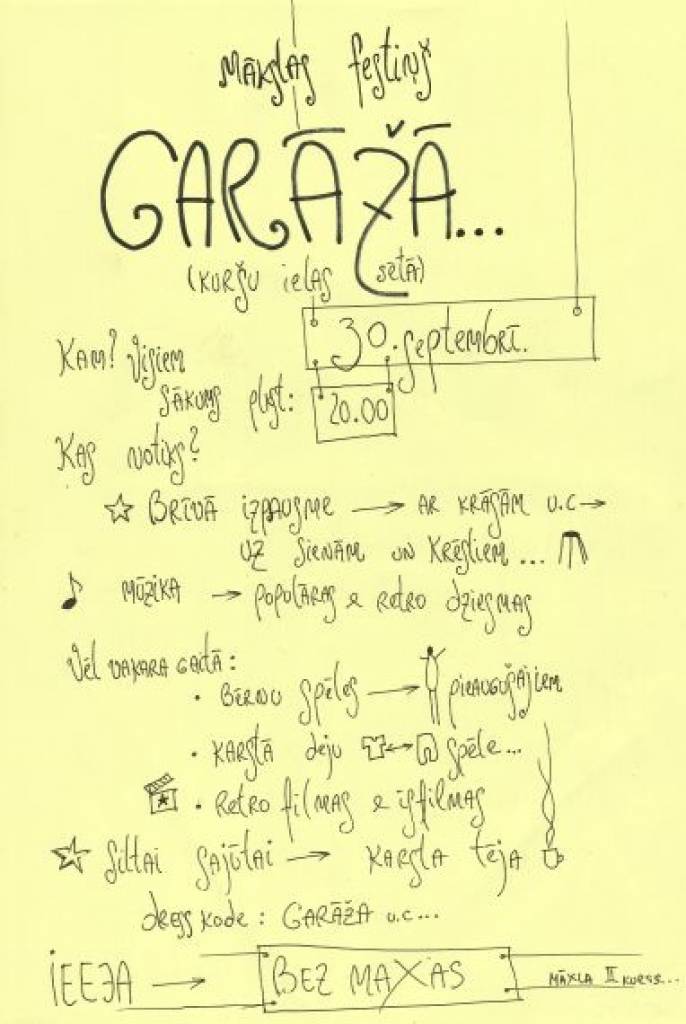 Mākslas festiņš
GARĀŽĀ...
(KURŠU ielas sētā)
30. septembrī.
KAM? Visiem
SĀKUMS plkst: 20.00
KAS NOTIKS?
BRĪVĀ izpausme → AR KRĀSĀM u.c →
UZ SIENĀM UN KRĒSLIEM ...
MŪZIKA → POPULĀRAS & RETRO dziesmas
Vēl vakara gaitā:
• BĒRNU spēles → pieaugušajiem
• KARSTĀ deju ↔ spēle...
• RETRO filmas & īsfilmas
Siltai sajūtai → KARSTA tēja
dress kode: GARĀŽA u.c...
IEEJA → BEZ MAXAS
MĀXLA II KURSS...